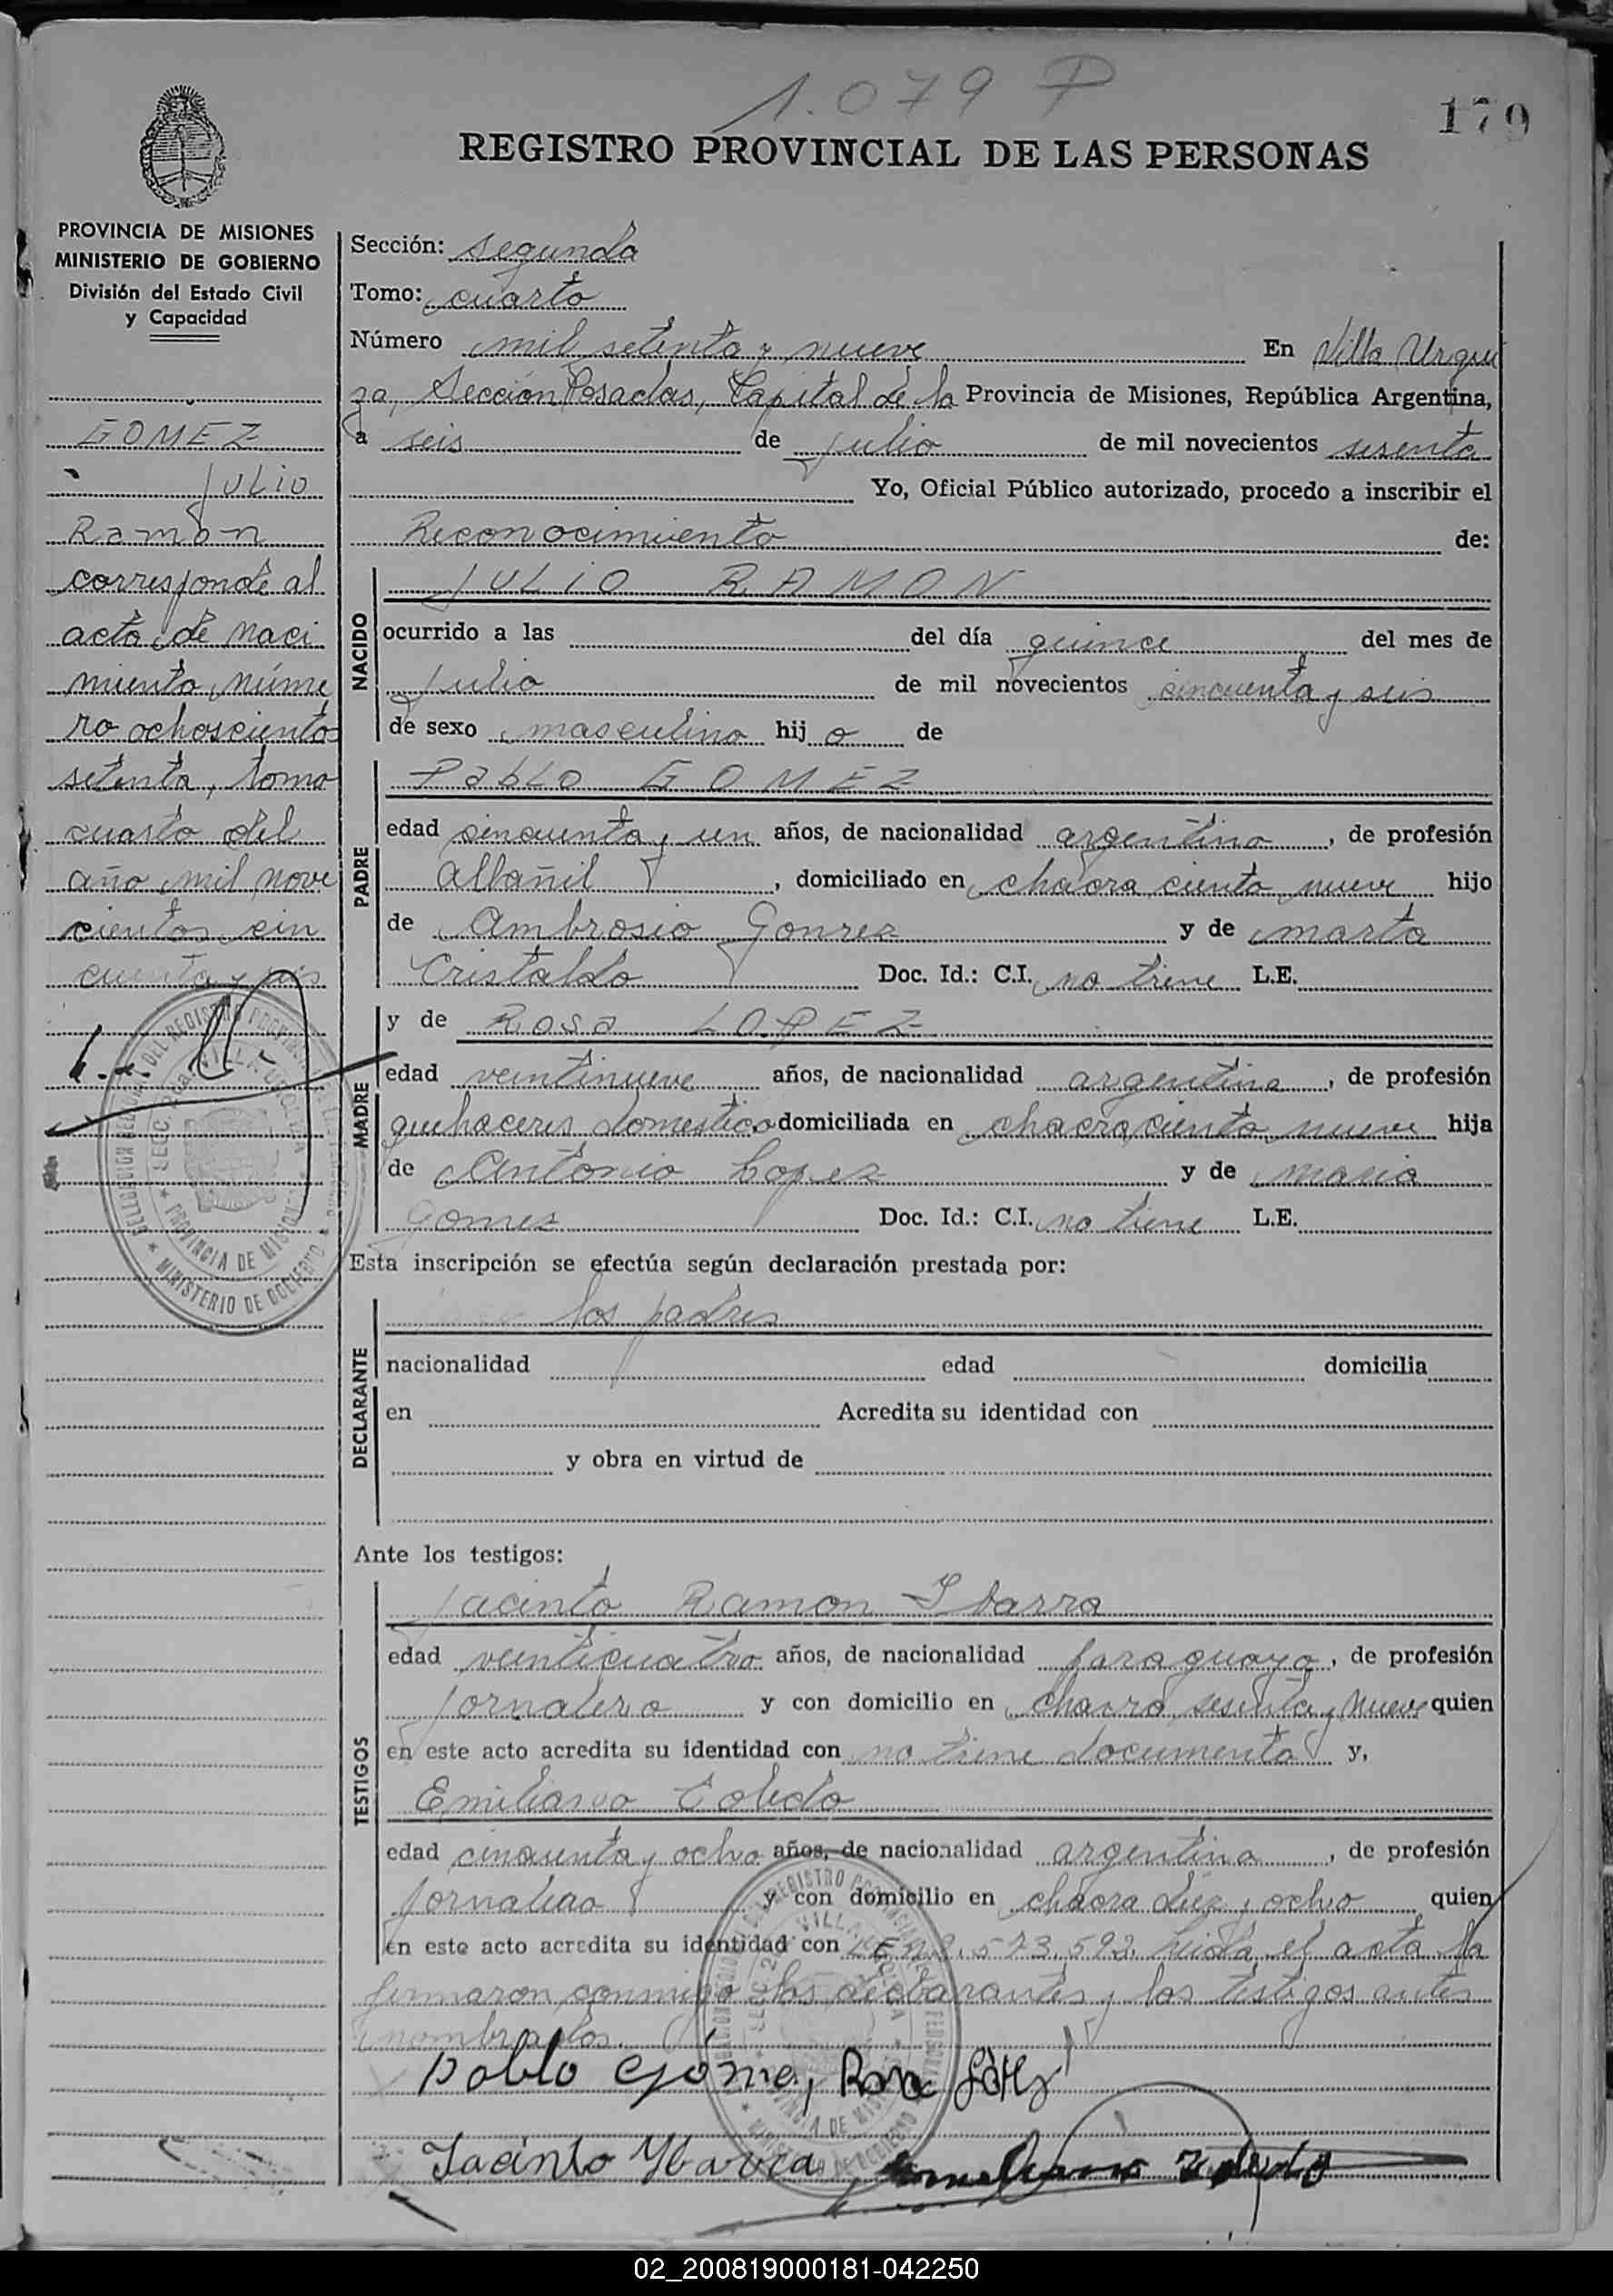 1.079 P
179
REGISTRO PROVINCIAL DE LAS PERSONAS
PROVINCIA DE MISIONES
MINISTERIO DE GOBIERNO
División del Estado Civil
y Capacidad
GOMEZ
Julio
Ramon
corresponde al
acta de naci
miento núme
ro ochoscientos
setenta, tomo
cuarto del
año mil nove
cientos cin
cuenta y seis
Sección: segunda
Tomo: cuarto
Número mil setenta y nueve En Villa Urqui
za, Sección Posadas, Capital de la Provincia de Misiones, República Argentina,
a seis de julio de mil novecientos sesenta
Yo, Oficial Público autorizado, procedo a inscribir el
Reconocimiento de:
NACIDO
JULIO RAMON
ocurrido a las del día quince del mes de
Julio de mil novecientos cincuenta y seis
de sexo masculino hij o de
PADRE
Pablo GOMEZ
edad cincuenta y un años, de nacionalidad argentino, de profesión
Albañil, domiciliado en chacra ciento nueve hijo
de Ambrosio Gomez y de Marta
Cristaldo Doc. Id.: C.I. no tiene L.E.
MADRE
y de Rosa LOPEZ
edad veintinueve años, de nacionalidad argentina, de profesión
quehaceres domestico domiciliada en chacra ciento nueve hija
de Antonio Lopez y de Maria
Gomez Doc. Id.: C.I. no tiene L.E.
Esta inscripción se efectúa según declaración prestada por:
DECLARANTE
los padres
nacionalidad edad domicilia
en Acredita su identidad con
y obra en virtud de
Ante los testigos:
TESTIGOS
Jacinto Ramon Ibarra
edad veinticuatro años, de nacionalidad paraguayo, de profesión
Jornalero y con domicilio en chacra sesenta y nueve quien
en este acto acredita su identidad con no tiene documento y,
Emiliano Toledo
edad cincuenta y ocho años, de nacionalidad argentina, de profesión
Jornalero y con domicilio en chacra diez y ocho quien
en este acto acredita su identidad con leida el acta la
firmaron conmigo los declarantes y los testigos antes
nombrados.
Pablo Gómez, Rosa López
Jacinto Ybarra, Emiliano Toledo
PROVINCIA DE MISIONES
MINISTERIO DE GOBIERNO
02_200819000181-042250